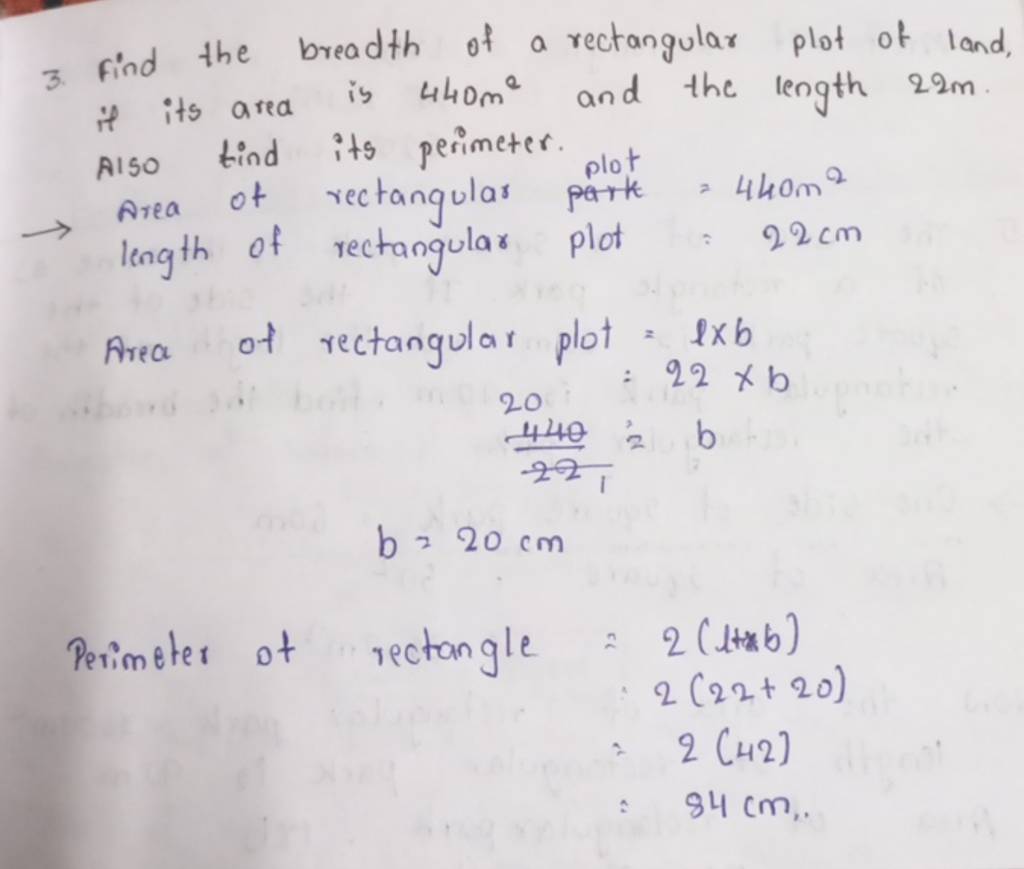 3. Find the breadth of a rectangular plot of land,
if its area is 440m² and the length 22m.
Also find its perimeter.
plot
→ Area of rectangular park = 440m²
length of rectangular plot = 22cm
Area of rectangular plot = l×b
= 22 × b
20
440 = b
22 1
b = 20 cm
Perimeter of rectangle = 2(l+b)
= 2(22+20)
= 2(42)
= 84 cm..